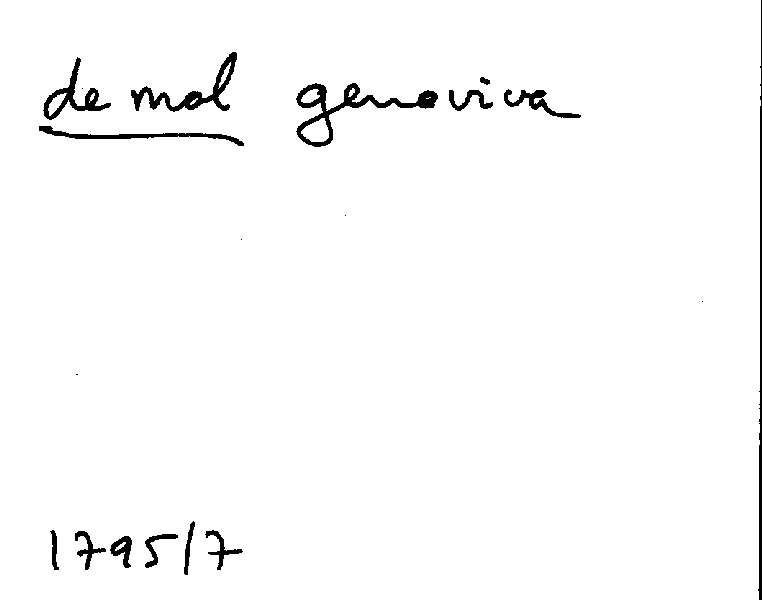 de mol genoviva
1795/7